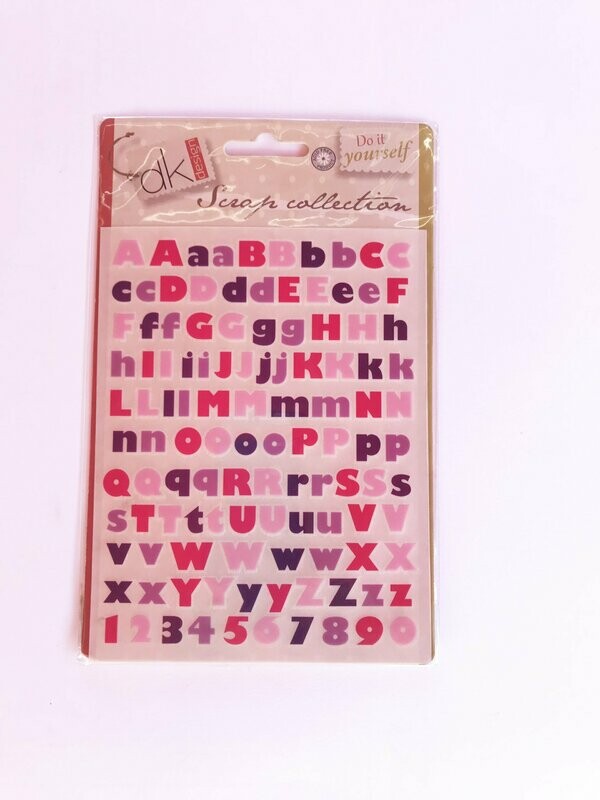 dk
design
Do it
yourself
Scrap collection
AAaaBBbbCC
ccDDddEEeeF
FffGGggHHh
hIIiiJJjjKKkk
LLllMMmmNN
nnOOooPPpp
QQqqRRrrSSs
sTTttUUuuVV
vvWWwwXX
xxYYyyZZzz
1234567890